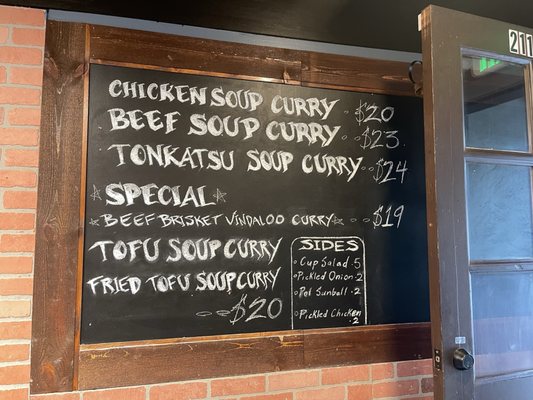 CHICKEN SOUP CURRY $20
BEEF SOUP CURRY $23
TONKATSU SOUP CURRY $24
SPECIAL
BEEF BRISKET VINDALOO CURRY $19
TOFU SOUP CURRY
FRIED TOFU SOUP CURRY
$20
SIDES
Cup Salad .5
Pickled Onion .2
Pot Sunball .2
Pickled Chicken
.2
211